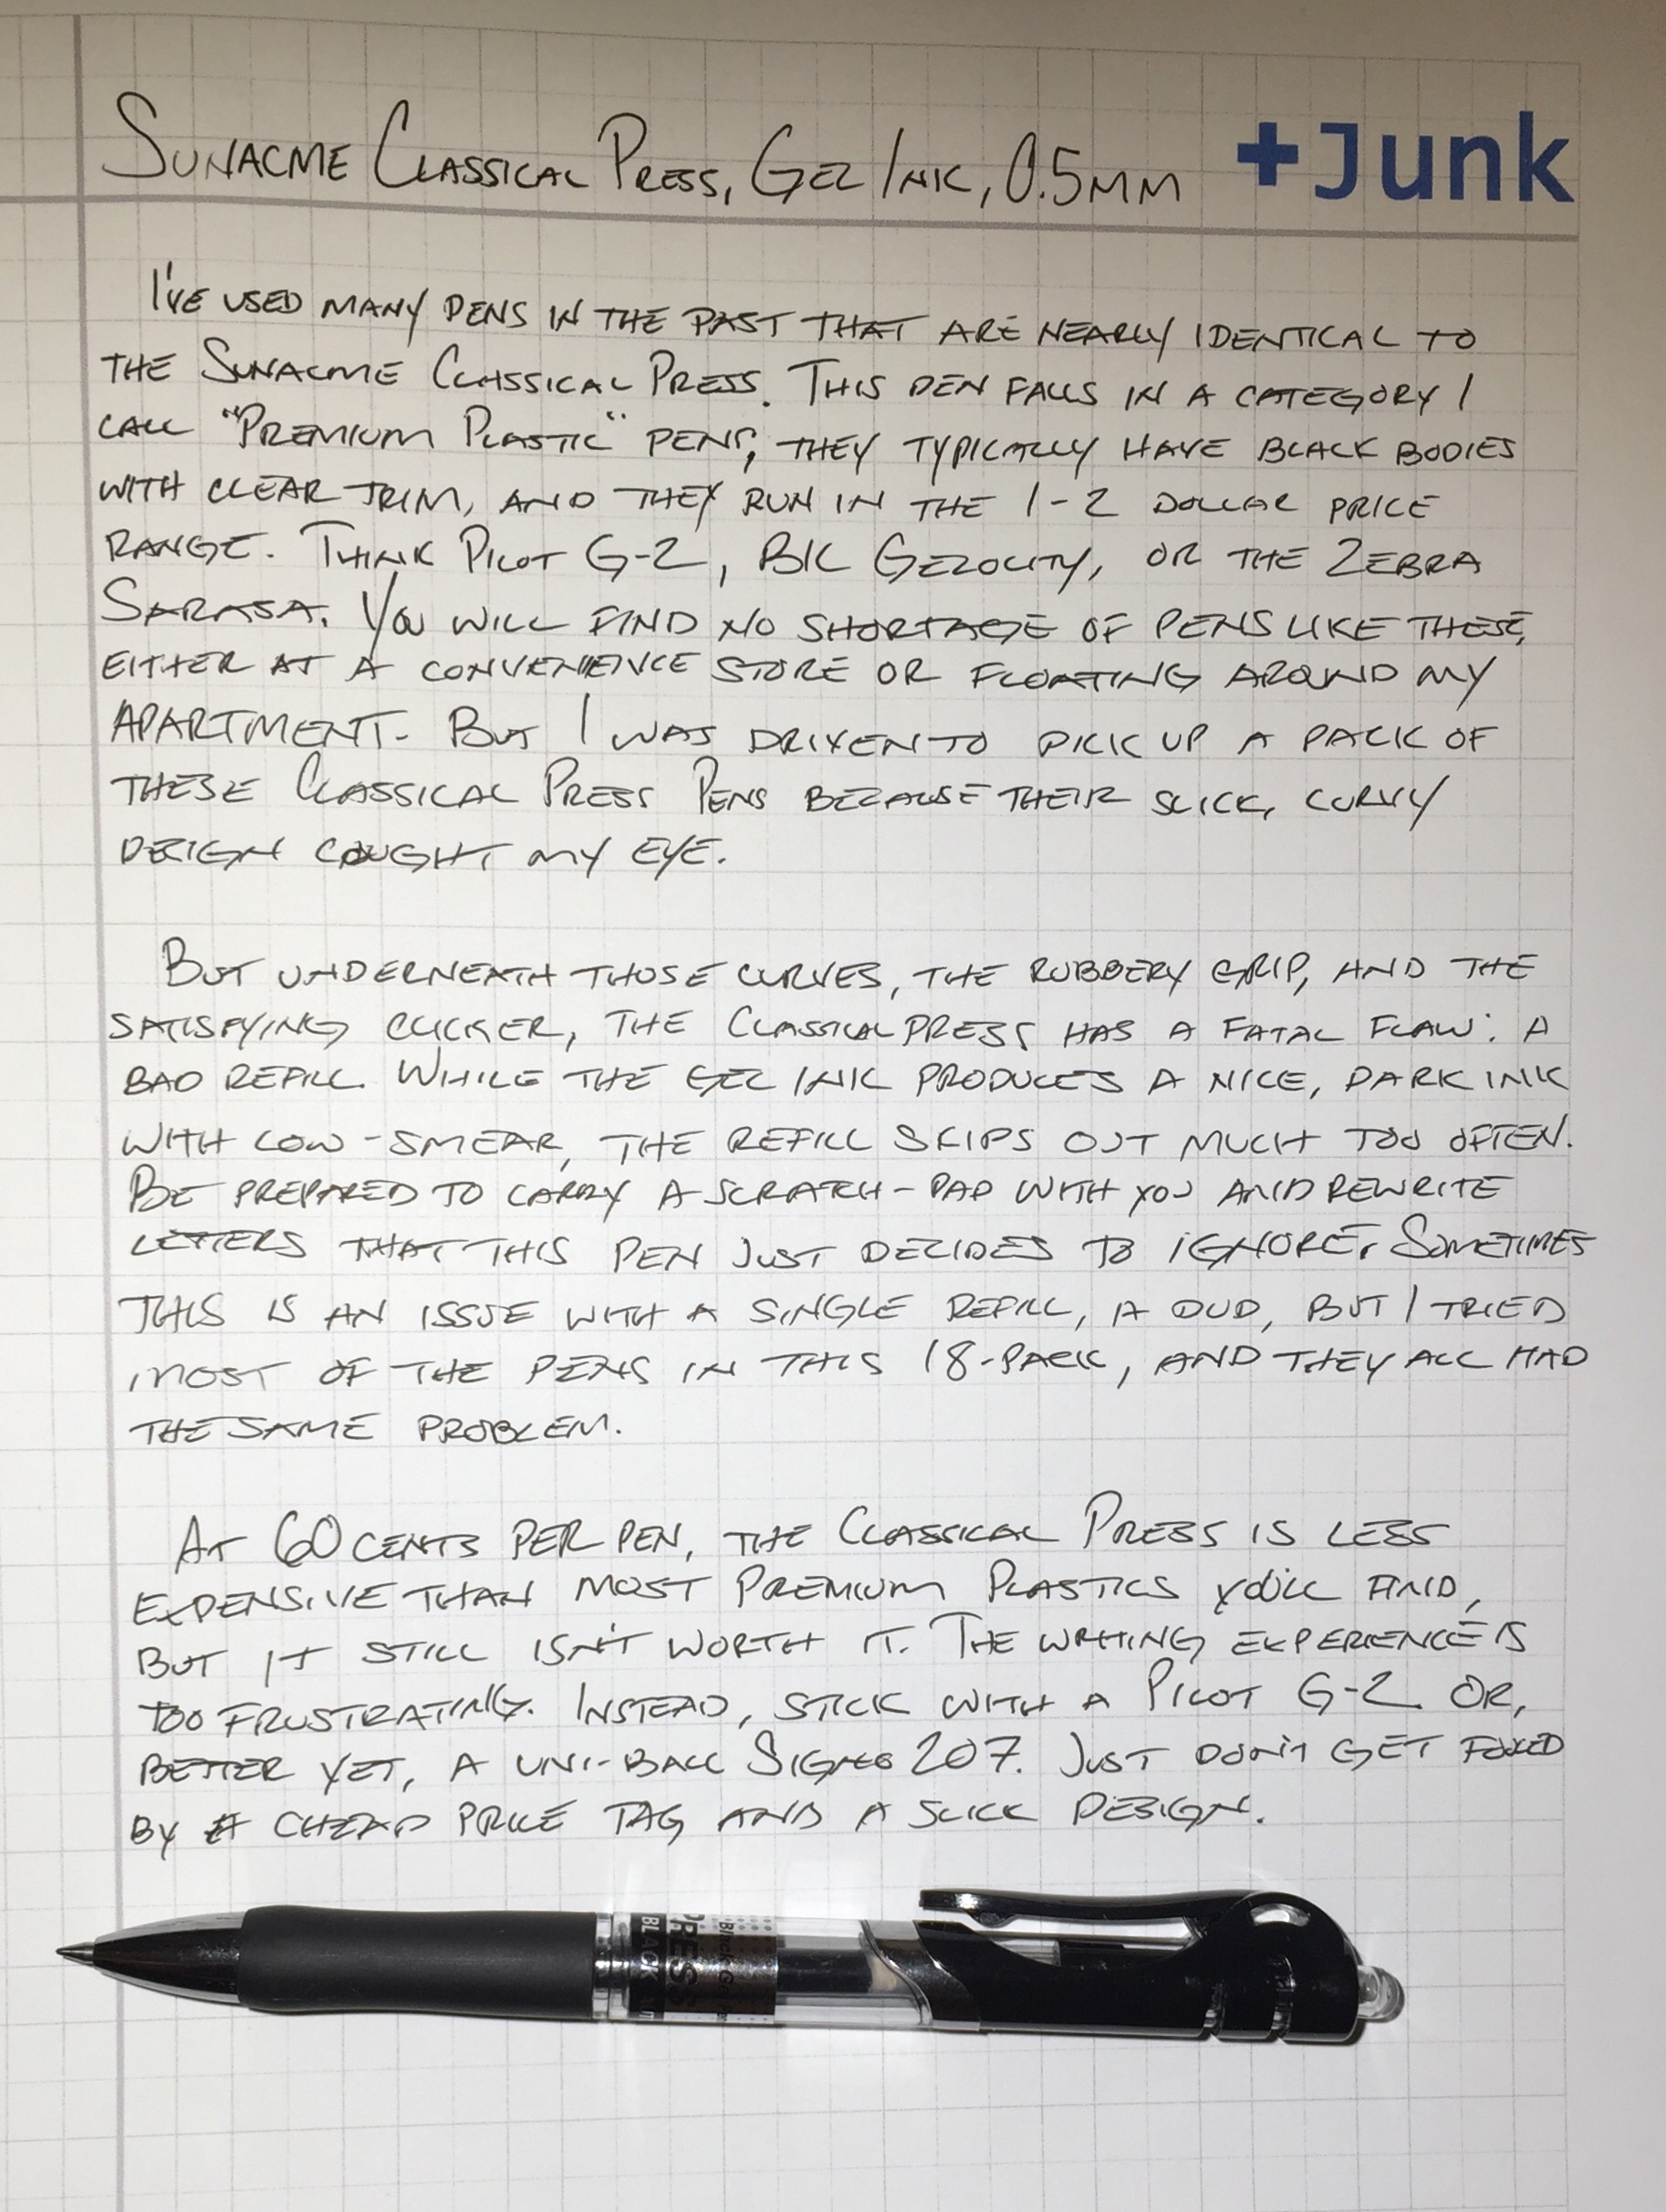 Sunacme Classical Press, Gel Ink, 0.5mm +Junk
I've used many pens in the past that are nearly identical to
the Sunacme Classical Press. This pen falls in a category I
call "Premium Plastic" pens; they typically have black bodies
with clear trim, and they run in the 1-2 dollar price
range. Think Pilot G-2, Bic Gelocity, or the Zebra
Sarasa. You will find no shortage of pens like these,
either at a convenience store or floating around my
apartment. But I was driven to pick up a pack of
these Classical Press Pens because their slick, curvy
design caught my eye.
But underneath those curves, the rubbery grip, and the
satisfying clicker, the Classical Press has a fatal flaw: a
bad refill. While the gel ink produces a nice, dark ink
with low-smear, the refill skips out much too often.
Be prepared to carry a scratch-pad with you and rewrite
letters that this pen just decides to ignore. Sometimes
this is an issue with a single refill, a dud, but I tried
most of the pens in this 18-pack, and they all had
the same problem.
At 60 cents per pen, the Classical Press is less
expensive than most Premium Plastics you'll find,
but it still isn't worth it. The writing experience is
too frustrating. Instead, stick with a Pilot G-2 or,
better yet, a uni-ball Signo 207. Just don't get fooled
by a cheap price tag and a slick design.
PRESS
BLACK